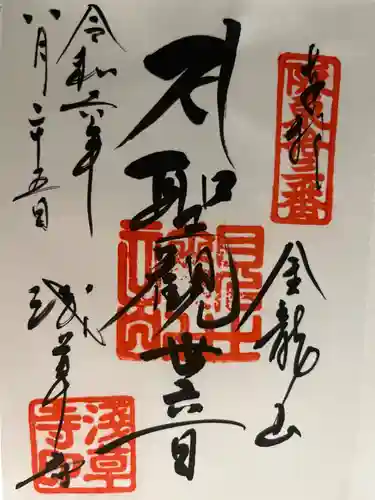 奉拝
坂東十三番
金龍山
聖觀世音
令和六年
八月二十五日
浅草寺
浅草寺印